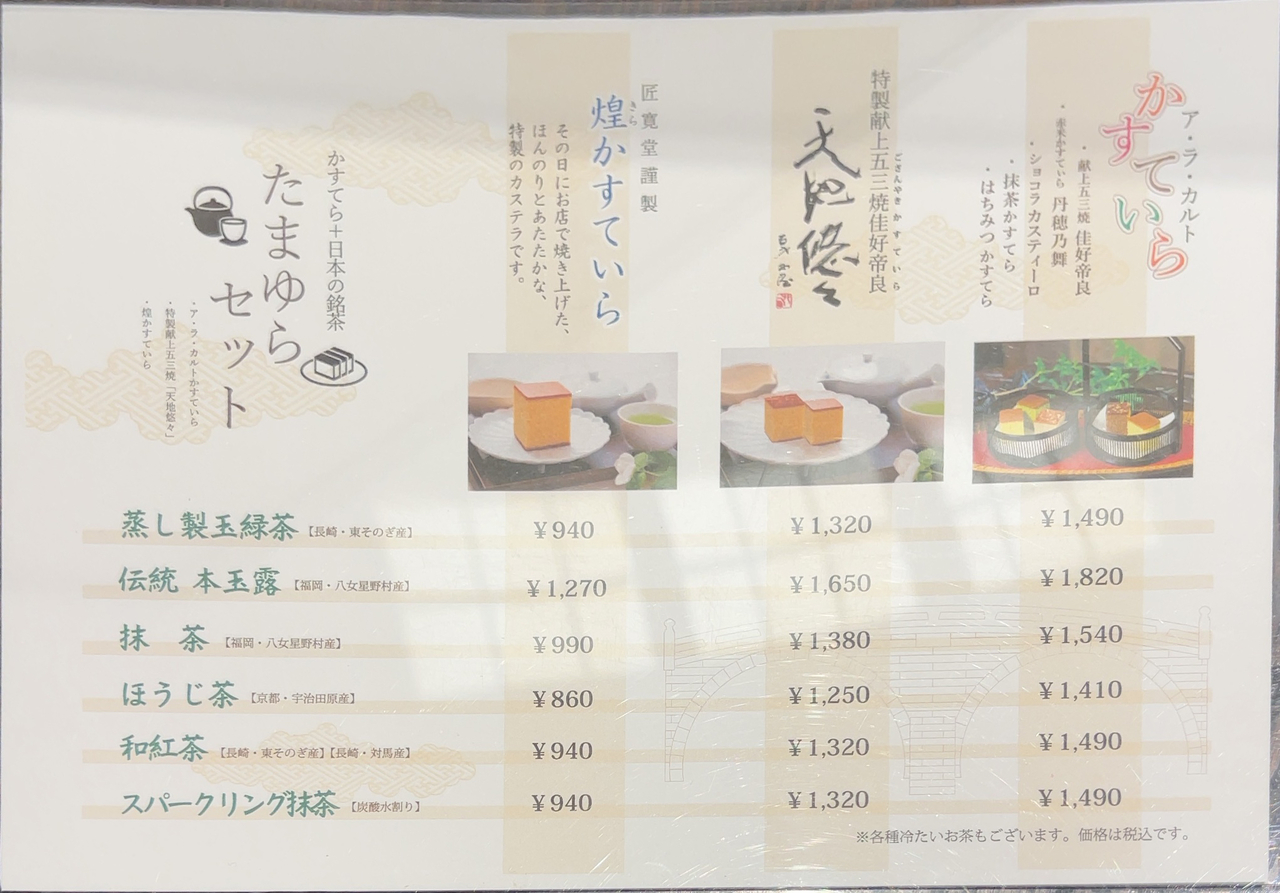 ア・ラ・カルト
かすてぃら
・献上五三焼 佳好帝良
・赤米かすてぃら 丹穂乃舞
・ショコラカスティーロ
・抹茶かすてら
・はちみつかすてら
特製献上五三焼佳好帝良
ごさんやきかすてぃら
天地悠々
匠寛堂謹製
煌かすてぃら
きら
その日にお店で焼き上げた、
ほんのりとあたたかな、
特製のカステラです。
かすてら+日本の銘茶
たまゆら
セット
・ア・ラ・カルトかすてぃら
・特製献上五三焼「天地悠々」
・煌かすてぃら
蒸し製玉緑茶【長崎・東そのぎ産】 ¥940 ¥1,320 ¥1,490
伝統 本玉露【福岡・八女星野村産】 ¥1,270 ¥1,650 ¥1,820
抹 茶【福岡・八女星野村産】 ¥990 ¥1,380 ¥1,540
ほうじ茶【京都・宇治田原産】 ¥860 ¥1,250 ¥1,410
和紅茶【長崎・東そのぎ産】【長崎・対馬産】 ¥940 ¥1,320 ¥1,490
スパークリング抹茶【炭酸水割り】 ¥940 ¥1,320 ¥1,490
※各種冷たいお茶もございます。価格は税込です。